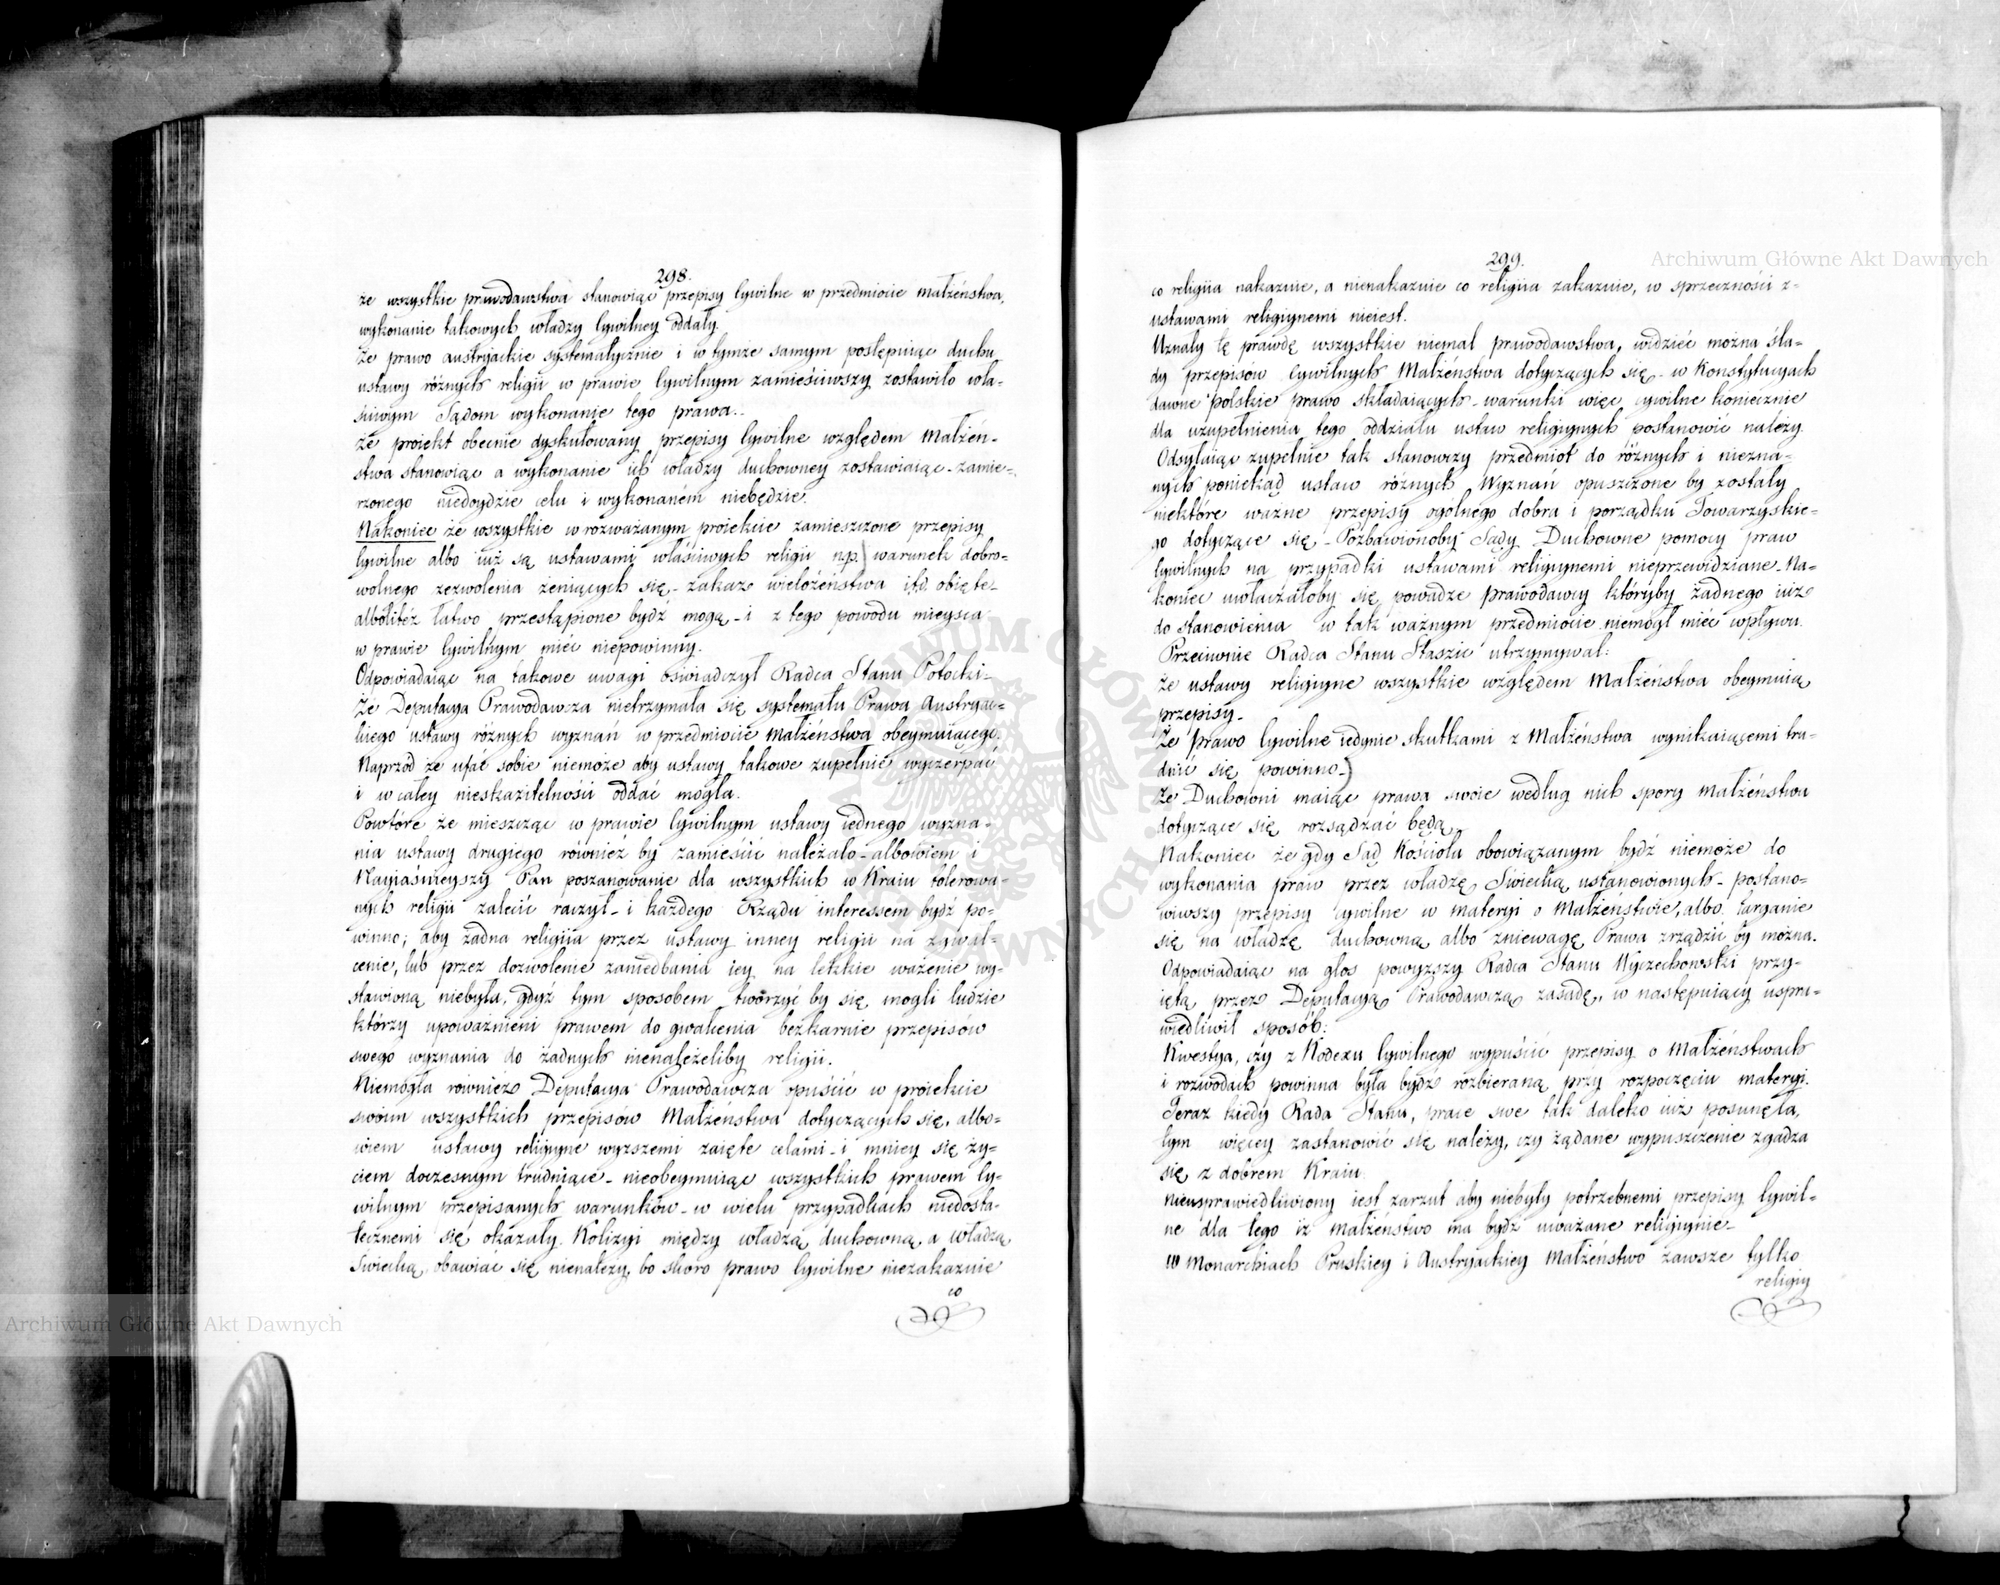 298.
że wszystkie prawodawstwa stanowiąc przepisy Cywilne w przedmiocie Małżeństwa,
wykonanie takowych władzy Cywilney oddały.
Że prawo austryackie systematycznie i w tymże samym postępuiąc duchu
ustawy różnych religii w prawie Cywilnym zamieściwszy zostawiło wła-
ściwym Sądom wykonanie tego prawa..
Że proiekt obecnie dyskutowany przepisy Cywilne względem Małżeń-
stwa stanowiąc a wykonanie ich władzy duchowney zostawiaiąc - zamie-
rzonego niedoydzie celu i wykonaném niebędzie.
Nakoniec że wszystkie w rozważanym proiekcie zamieszczone przepisy
Cywilne albo iuż są ustawami właściwych religii np. warunek dobro-
wolnego zezwolenia żeniących się - zakaz wielożeństwa i.t.d. obięte -
albolitéż łatwo przestąpione bydź mogą - i z tego powodu mieysca
w prawie Cywilnym mieć niepowinny.
Odpowiadaiąc na takowe uwagi oświadczył Radca Stanu Potocki -
Że Deputacya Prawodawcza nietrzymała się systematu Prawa Austryac-
kiego ustawy różnych wyznań w przedmiocie Małżeństwa obeymuiącego.
Naprzód że ufać sobie niemoże aby ustawy takowe zupełnie wyczerpać
i w całey nieskazitelności oddać mogła.
Powtóre że mieszcząc w prawie Cywilnym ustawy iednego wyzna-
nia ustawy drugiego równiez by zamieścić należało - albowiem i
Nayiaśnieyszy Pan poszanowanie dla wszystkich w Kraiu tolerowa-
nych religii zalecić raczył - i każdego Rządu interessem bydź po-
winno; aby żadna religiia przez ustawy inney religii na zgwał-
cenie, lub przez dozwolenie zaniedbania iey na letkie ważenie wy-
stawioną niebyła, gdyż tym sposobem tworzyć by się mogli ludzie
którzy upoważnieni prawem do gwałcenia bezkarnie przepisów
swego wyznania do żadnych nienależeliby religii.
Niemogła również Deputacya Prawodawcza opuścić w proiekcie
swoim wszystkich przepisów Małżeństwa dotyczących się, albo-
wiem ustawy religiyne wyższemi zaięte celami - i mniey się ży-
ciem doczesnym trudniące - nieobeymuiąc wszystkich prawem Cy-
wilnym przepisanych warunków - w wielu przypadkach niedosta-
tecznemi się okazały. Kolizyi między władzą duchowną, a władzą
Świecką, obawiać się nienależy, bo skoro prawo Cywilne niezakazuie
co
299.
co religiia nakazuie, a nienakazuie co religiia zakazuie, w sprzeczności z-
ustawami religiynemi nieiest.
Uznały tę prawdę wszystkie niemal prawodawstwa, widzieć można śla-
dy przepisów Cywilnych Małżeństwa dotyczących się - w Konstytucyach
dawne polskie prawo składaiących - warunki więc cywilne koniecznie
dla uzupełnienia tego oddziału ustaw religiynych postanowić należy.
Odsyłaiąc zupełnie tak stanowczy przedmiot do różnych i niezna-
nych poniekąd ustaw różnych Wyznań opuszczone by zostały
niektóre ważne przepisy ogólnego dobra i porządku Towarzyskie-
go dotyczące się - Pozbawionoby Sądy Duchowne pomocy praw
Cywilnych na przypadki ustawami religiynemi nieprzewidziane - Na-
koniec uwłaczałoby się powadze prawodawcy któryby żadnego iuż
do stanowienia w tak ważnym przedmiocie niemógł mieć wpływu.
Przeciwnie Radca Stanu Staszic utrzymywał:
Że ustawy religiyne wszystkie względem Małżeństwa obeymuią
przepisy -
Że prawo Cywilne iedynie skutkami z Małżeństwa wynikaiącemi tru-
dnić się powinno -
Że Duchowni maiąc prawa swoie według nich spory Małżeństwa
dotyczące się rozsądzać będą.
Nakoniec że gdy Sąd Kościoła obowiązanym bydź niemoże do
wykonania praw przez władzę Świecką ustanowionych - postano-
wiwszy przepisy cywilne w materyi o Małżeństwie, albo targanie
się na władzę duchowną albo zniewagę Prawa zrządzić by można.
Odpowiadaiąc na głos powyższy Radca Stanu Wyczechowski przy-
iętą przez Deputacyą Prawodawczą zasadę, w następuiący uspra-
wiedliwił sposób:
Kwestya, czy z Kodexu Cywilnego wypuścić przepisy o Małżeństwach
i rozwodach powinna była bydź rozbieraną przy rozpoczęciu materyi.
Teraz kiedy Rada Stanu, prace swe tak daleko iuż posunęła,
tym więcey zastanowić się należy, czy żądane wypuszczenie zgadza
się z dobrem Kraiu.
Nieusprawiedliwiony iest zarzut aby niebyły potrzebnemi przepisy Cywil-
ne dla tego iż małżeństwo ma bydź uważane religiynie -
W Monarchiach Pruskiey i Austryackiey Małżeństwo zawsze tylko
religiy
Archiwum Główne Akt Dawnych
Archiwum Główne Akt Dawnych
ARCHIWUM GŁÓWNE AKT DAWNYCH